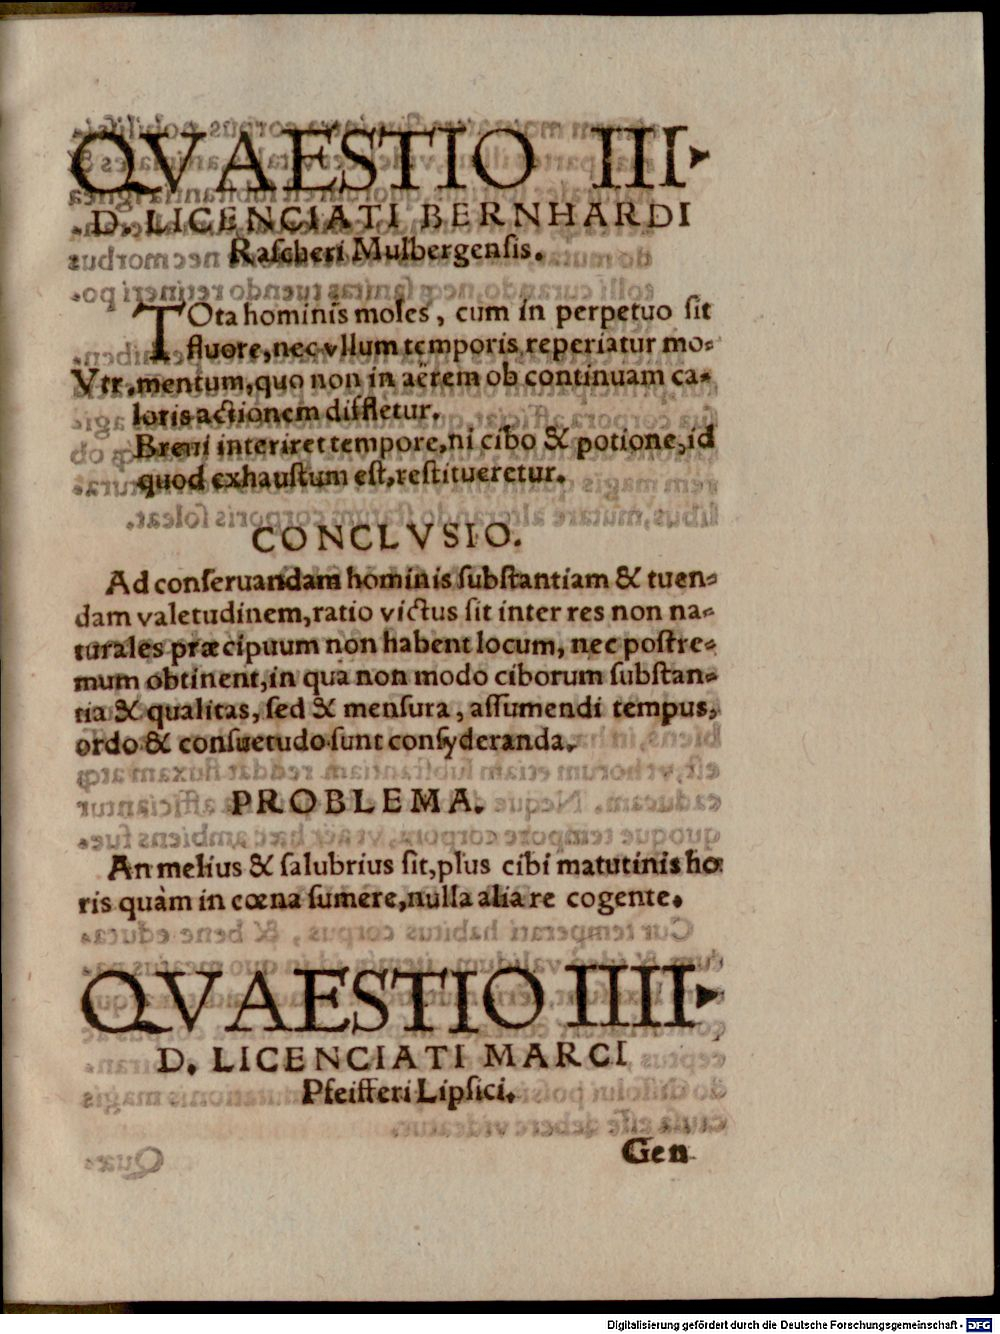 QVAESTIO III.
D. LICENCIATI BERNHARDI
Rascheri Mulbergensis.
TOta hominis moles, cum in perpetuo sit
fluore, nec vllum temporis reperiatur mo-
Vtr. mentum, quo non in aërem ob continuam ca-
loris actionem diffletur.
Breui interiret tempore, ni cibo & potione, id
quod exhaustum est, restitueretur.
CONCLVSIO.
Ad conseruandam hominis substantiam & tuen-
dam valetudinem, ratio victus sit inter res non na-
turales præcipuum non habent locum, nec postre-
mum obtinent, in qua non modo ciborum substan-
tia & qualitas, sed & mensura, assumendi tempus,
ordo & consuetudo sunt consyderanda.
PROBLEMA.
An melius & salubrius sit, plus cibi matutinis ho
ris quàm in cœna sumere, nulla alia re cogente.
QVAESTIO IIII.
D. LICENCIATI MARCI
Pfeifferi Lipsici.
Gen
Digitalisierung gefördert durch die Deutsche Forschungsgemeinschaft - DFG